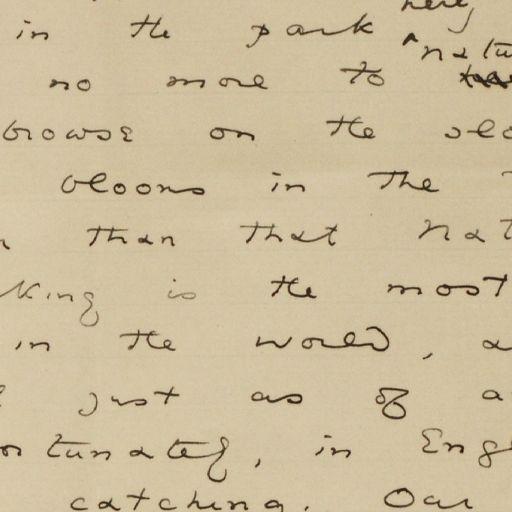 here,
in the park ^ natu
no more to
browse on the
blooms in the
than that Nat
king is the most
in the world, a
just as of a
ortunately, in Eng
catching. Our